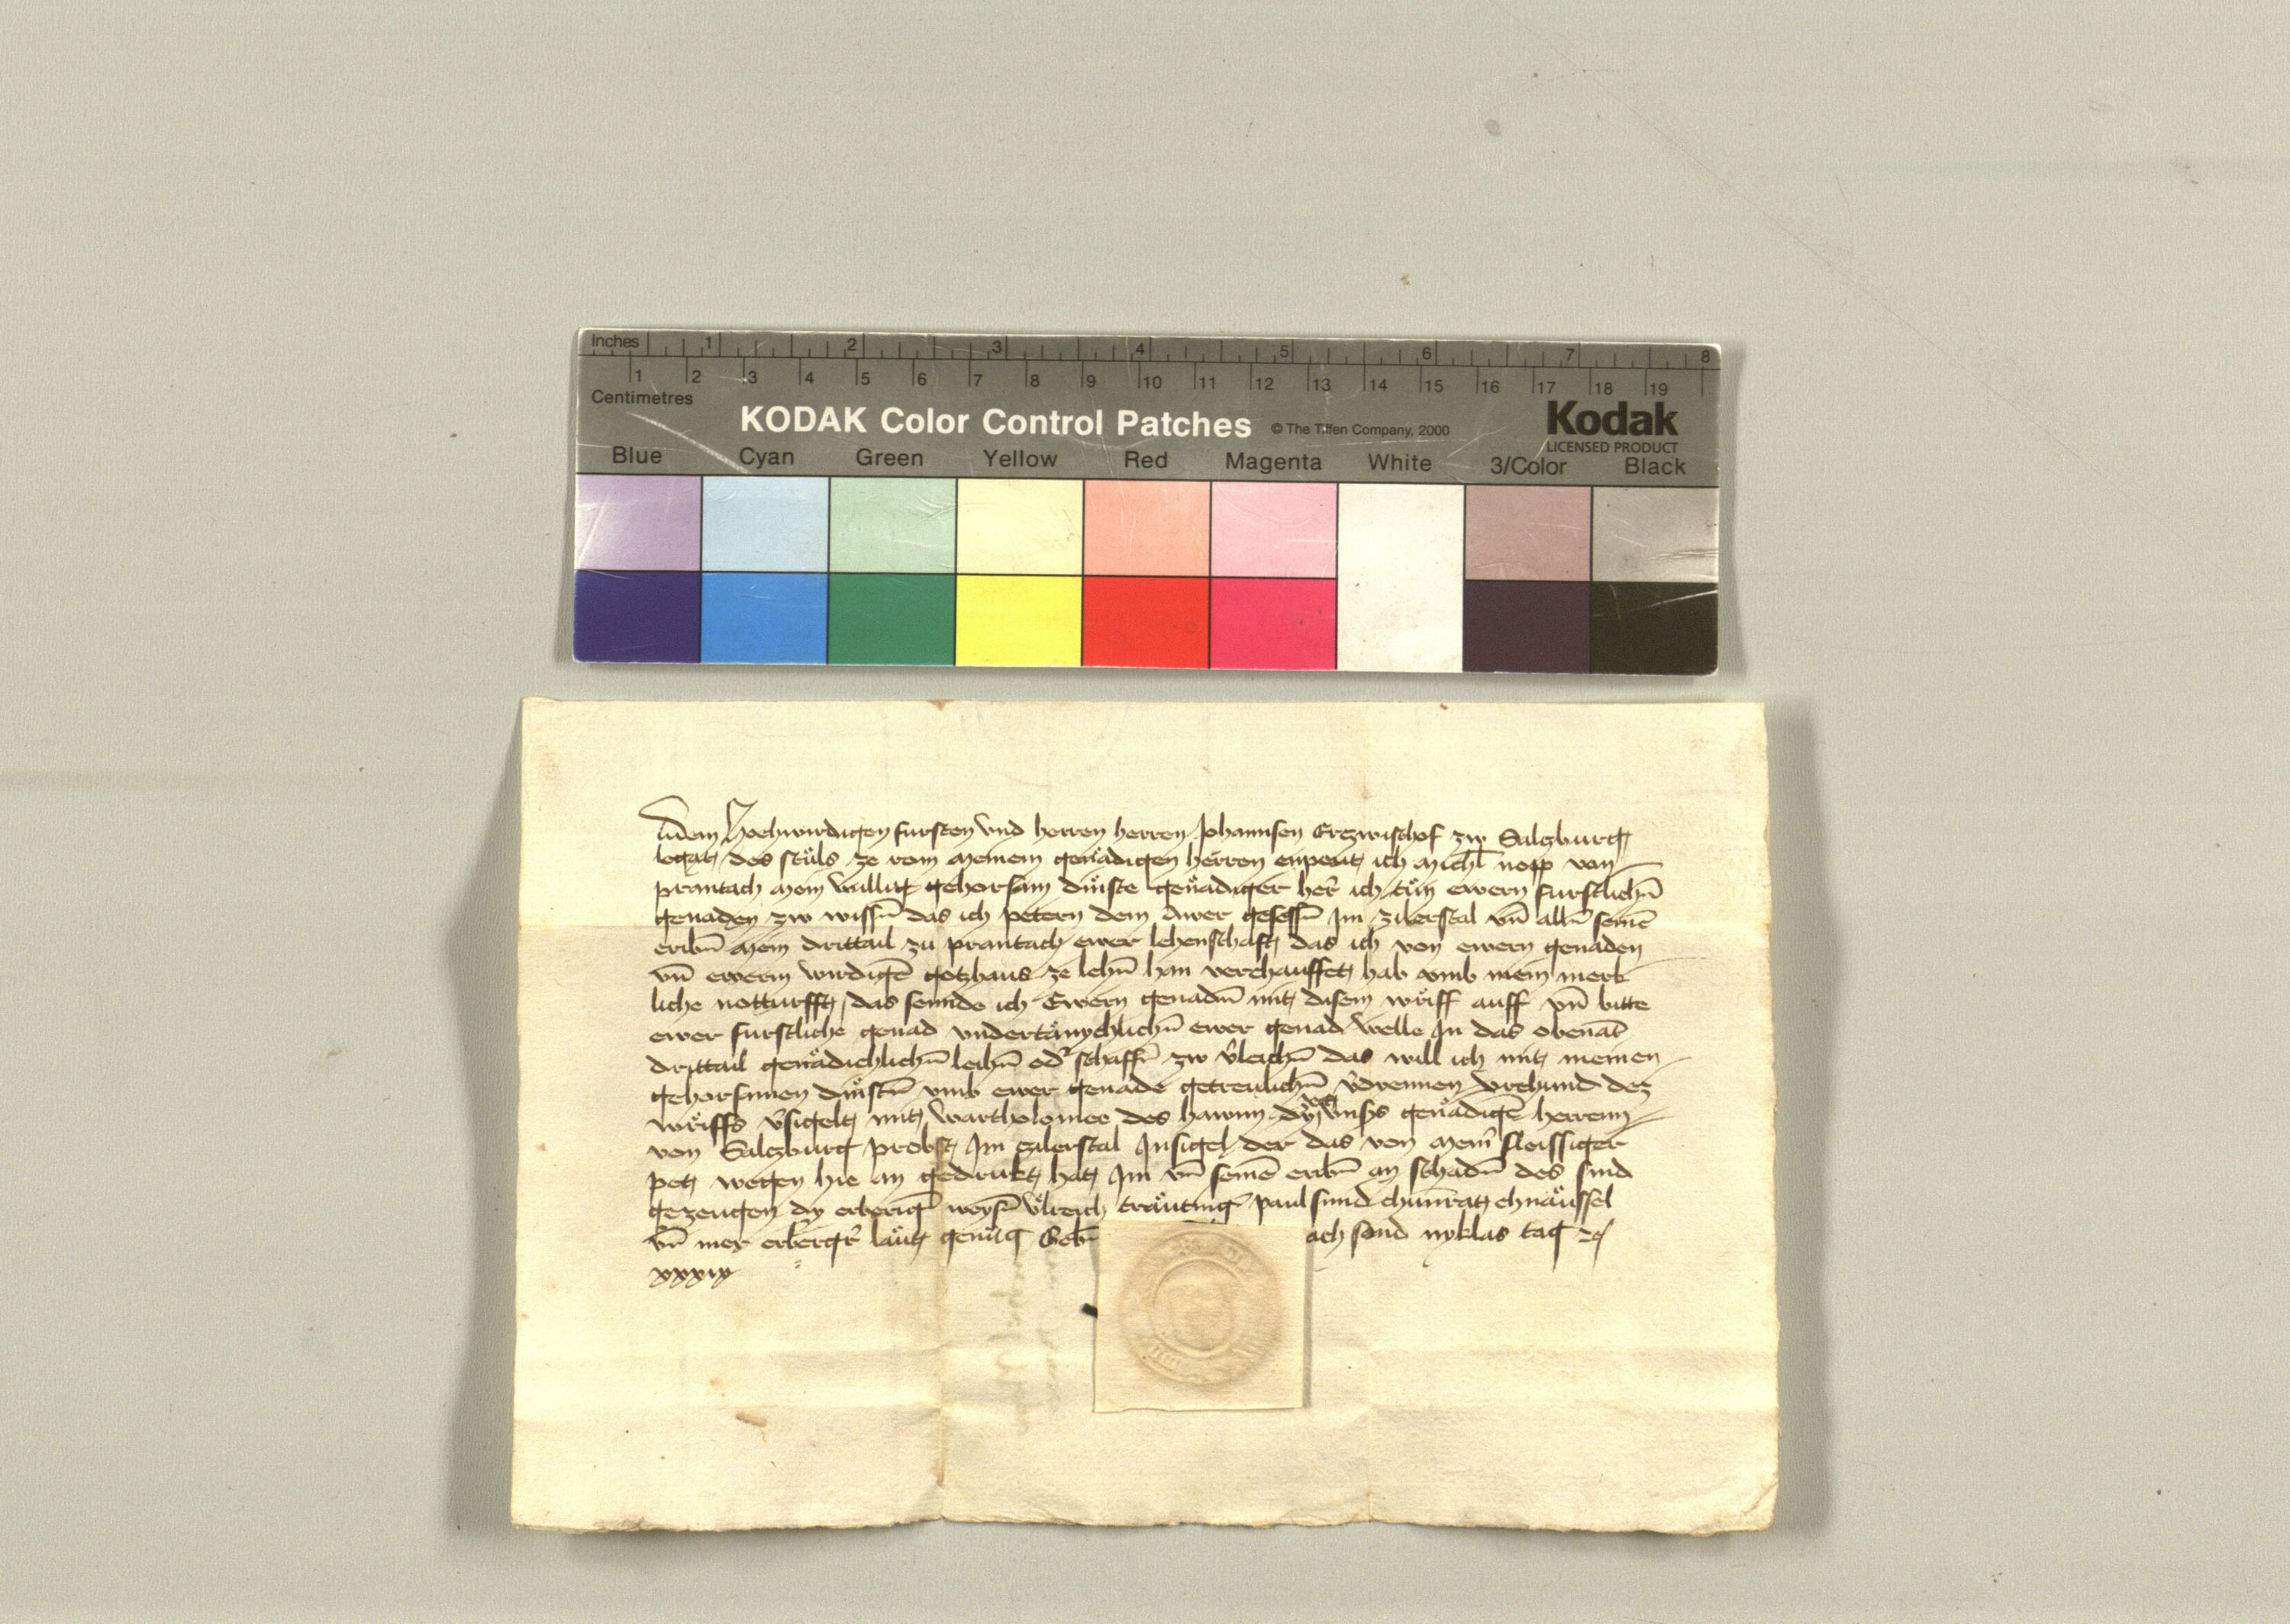 Inches 1 2 3 4 5 6 7 8
1 2 3 4 5 6 7 8 9 10 11 12 13 14 15 16 17 18 19
Centimetres
KODAK Color Control Patches © The Tiffen Company, 2000 Kodak
LICENSED PRODUCT
Blue Cyan Green Yellow Red Magenta White 3/Color Black
Dem Hochwirdigen fursten vnd herren herren Johannsen Erczwischof zw Salczburg
legat des stůls ze rom meinem genädigen herren enpeut ich Michl nopp von
prantach mein willig gehorsam dinste genädiger her̄ ich tůn ewern furstlichn̄
genaden zw wissn̄ das ich petern dem Awer gesessn̄ Im zilerstal vn̄ alln̄ seinē
eribn̄ mein drittail zu prantach ewer lehenschaft das ich von ewern genaden
vn̄ ewerm wirdigē gotzhaus ze lehn̄ han verchauffet hab vmb mein merk
liche notturfft das sennde ich Ewern genadn̄ mit disem wriff auff vn̄ bitte
ewer furstliche genad vndertänychlichn̄ ewer genad welle In das obenāt
drittail genädichlichn̄ leihn̄ od̄ schaffn̄ zw v̄leichn̄ das will ich mit meinen
gehorsamen dinstn̄ vmb ewer genade getreulichn̄ v̄dyennen Vrchund dez
wriffs v̄sigelt mit Wartholomee des hawnn genädigē herrenn
von Salczburg probst Im zilerstal Insigel der das von meīn fleissiger
pet wegen hie an gedrukt hat Im vn̄ seinē eribn̄ an schadn̄ des sind
gezeugen dy erberigē weysn̄ Vlreich träutinḡ paul sund chunrat chnäussel
vn̄ mer erbergr̄ läut genůg Gebn̄ ach sand nyklas tag
xxxix